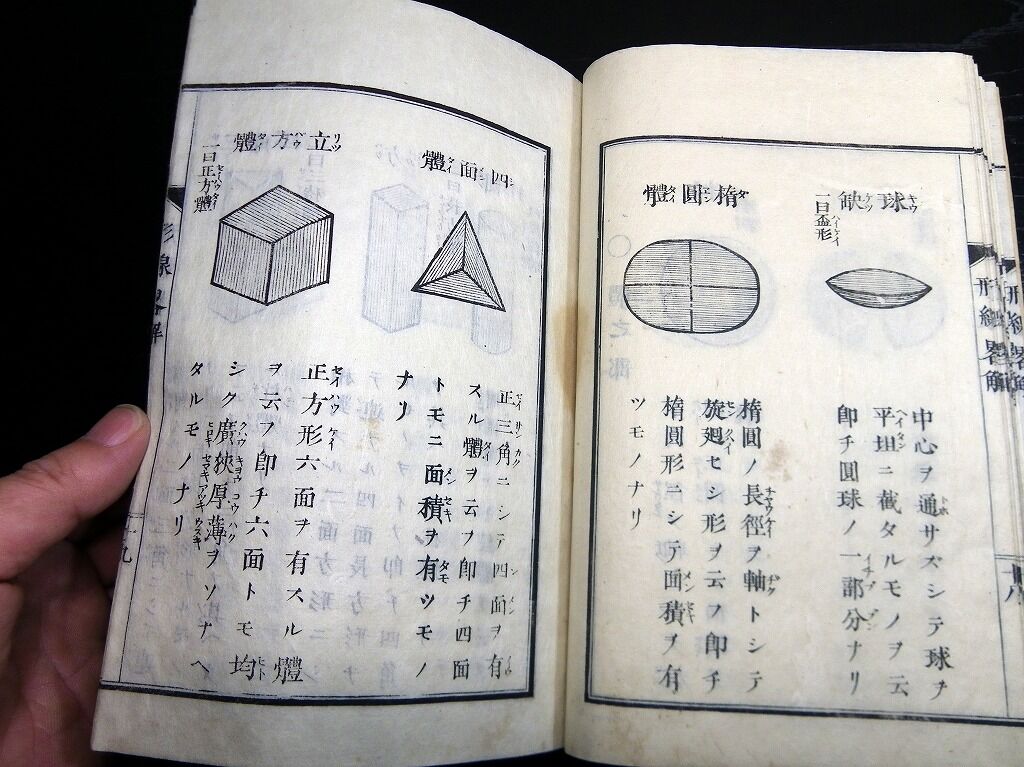 形線畧解
十八
球缺
一曰盃形
中心ヲ通サズシテ球ヲ
平坦ニ截タルモノヲ云
卽チ圓球ノ一部分ナリ
楕圓體
楕圓ノ長徑ヲ軸トシテ
旋廻セシ形ヲ云フ卽チ
楕圓形ニシテ面積ヲ有
ツモノナリ
四面體
正三角ニシテ四面ヲ有
スル體ヲ云フ卽チ四面
トモニ面積ヲ有ツモノ
ナリ
立方體
一曰正方體
正方形六面ヲ有スル體
ヲ云フ卽チ六面トモ均
シク廣狹厚薄ヲソナヘ
タルモノナリ
形線畧解
十九